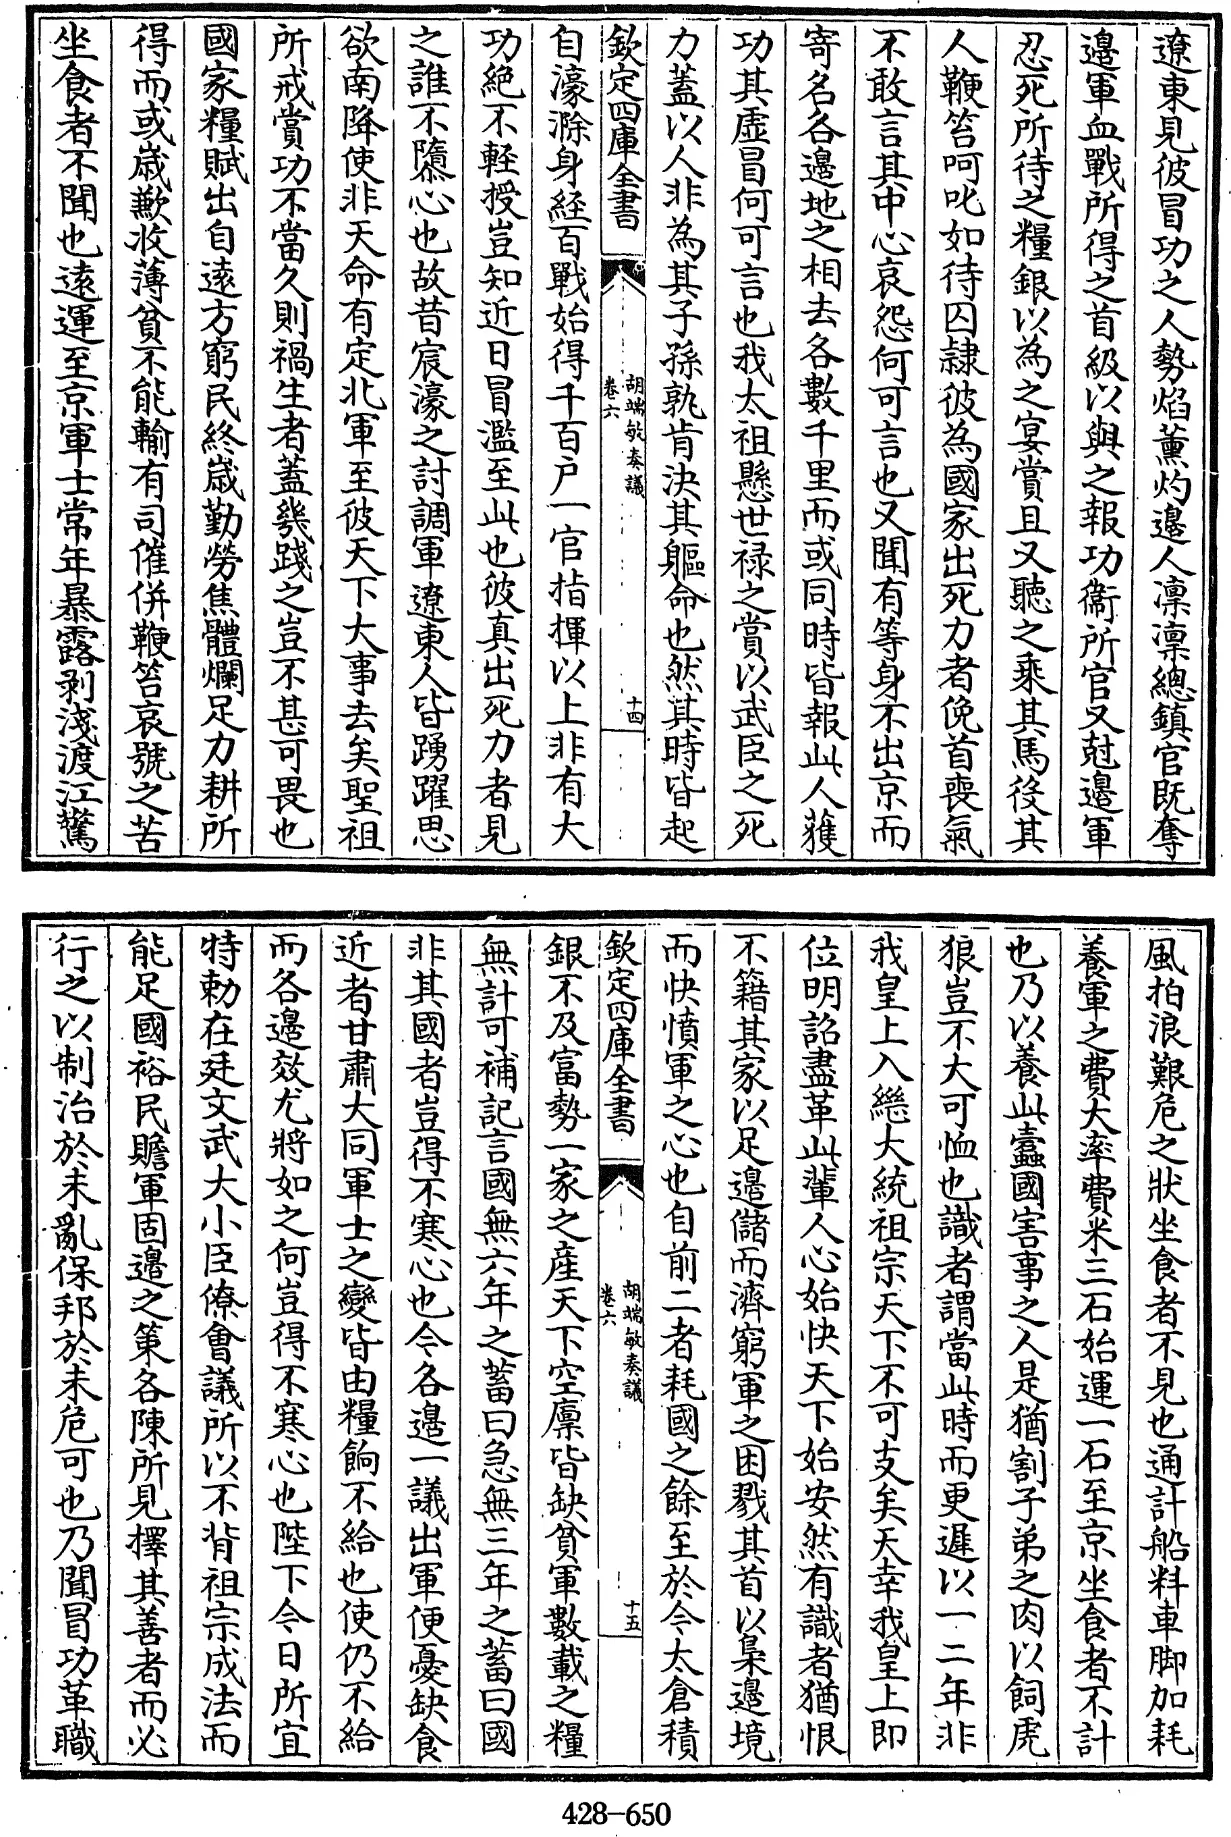 遼東見彼冒功之人勢焰薰灼邊人凜凜總鎮官既奪
邊軍血戰所得之首級以與之報功衞所官又尅邊軍
忍死所待之糧銀以為之宴賞且又聽之乘其馬役其
人鞭笞呵叱如待囚隷彼為國家出死力者俛首喪氣
不敢言其中心哀怨何可言也又聞有等身不出京而
寄名各邊地之相去各數千里而或同時皆報此人獲
功其虛冒何可言也我太祖懸世禄之賞以武臣之死
力蓋以人非為其子孫孰肯決其軀命也然其時皆起
欽定四庫全書
胡端敏奏議
卷六
十四
自濠滁身経百戰始得千百户一官指揮以上非有大
功絶不輕授豈知近日冒濫至此也彼真出死力者見
之誰不隳心也故昔宸濠之討調軍遼東人皆踴躍思
欲南降使非天命有定北軍至彼天下大事去矣聖祖
所戒賞功不當久則禍生者蓋幾踐之豈不甚可畏也
國家糧賦出自遠方窮民終歲勤勞焦體爛足力耕所
得而或歲歉收薄貧不能輸有司催併鞭笞哀號之苦
坐食者不聞也遠運至京軍士常年暴露剥淺渡江驚
風拍浪艱危之狀坐食者不見也通計船料車脚加耗
養軍之費大率費米三石始運一石至京坐食者不計
也乃以養此蠧國害事之人是猶割子弟之肉以飼虎
狼豈不大可恤也識者謂當此時而更遲以一二年非
我皇上入繼大統祖宗天下不可支矣天幸我皇上即
位明詔盡革此輩人心始快天下始安然有識者猶恨
不籍其家以足邊儲而濟窮軍之困戮其首以梟邊境
而快憤軍之心也自前二者耗國之餘至於今太倉積
欽定四庫全書
胡端敏奏議
卷六
十五
銀不及富勢一家之産天下空廪皆缺貧軍數載之糧
無計可補記言國無六年之蓄曰急無三年之蓄曰國
非其國者豈得不寒心也今各邊一議出軍便憂缺食
近者甘肅大同軍士之變皆由糧餉不給也使仍不給
而各邊效尤將如之何豈得不寒心也陛下今日所宜
特勅在廷文武大小臣僚會議所以不背祖宗成法而
能足國裕民贍軍固邊之策各陳所見擇其善者而必
行之以制治於未亂保邦於未危可也乃聞冒功革職
428-650